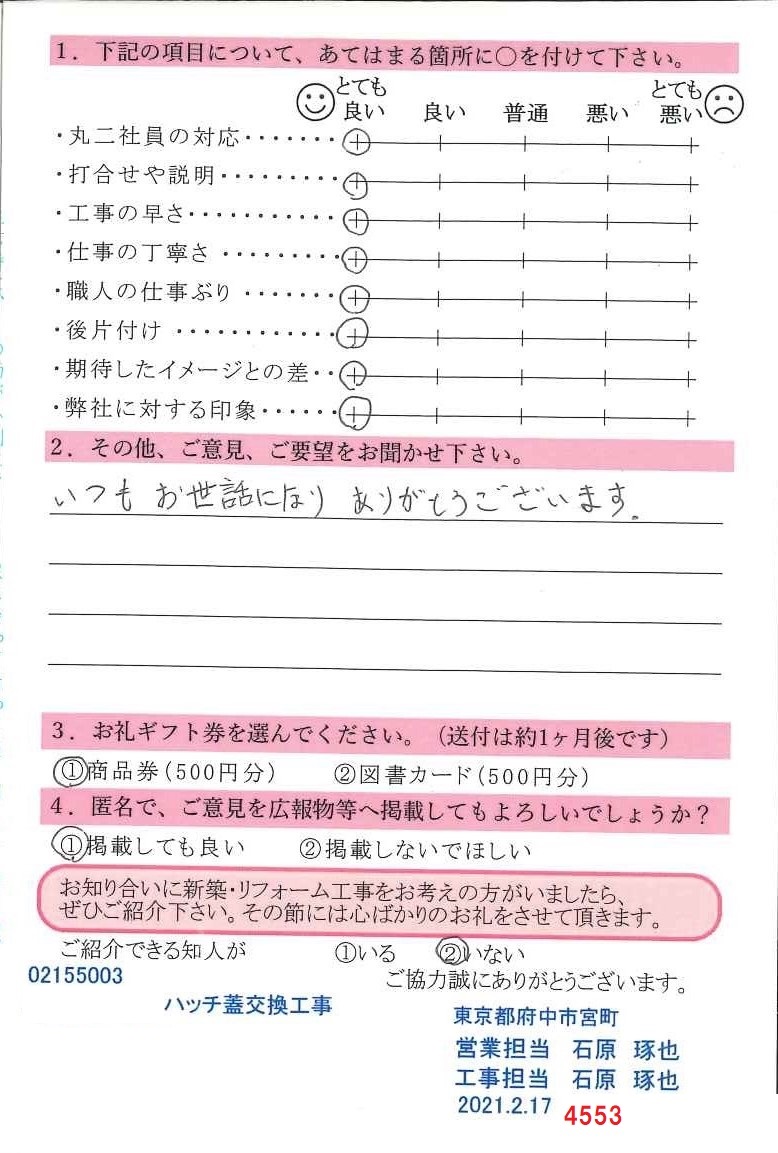 1．下記の項目について、あてはまる箇所に○を付けて下さい。
とても良い 良い 普通 悪い とても悪い
・丸二社員の対応・・・・・・・
・打合せや説明・・・・・・・・・
・工事の早さ・・・・・・・・・・・
・仕事の丁寧さ・・・・・・・・・
・職人の仕事ぶり・・・・・・・
・後片付け・・・・・・・・・・・・
・期待したイメージとの差・・
・弊社に対する印象・・・・・・
2．その他、ご意見、ご要望をお聞かせ下さい。
いつも お世話になり ありがとうございます.
3．お礼ギフト券を選んでください。（送付は約1ヶ月後です）
①商品券(500円分) ②図書カード(500円分)
4．匿名で、ご意見を広報物等へ掲載してもよろしいでしょうか？
①掲載しても良い ②掲載しないでほしい
お知り合いに新築・リフォーム工事をお考えの方がいましたら、
ぜひご紹介下さい。その節には心ばかりのお礼をさせて頂きます。
ご紹介できる知人が ①いる ②いない
02155003 ご協力誠にありがとうございます。
ハッチ蓋交換工事 東京都府中市宮町
営業担当 石原 琢也
工事担当 石原 琢也
2021.2.17 4553